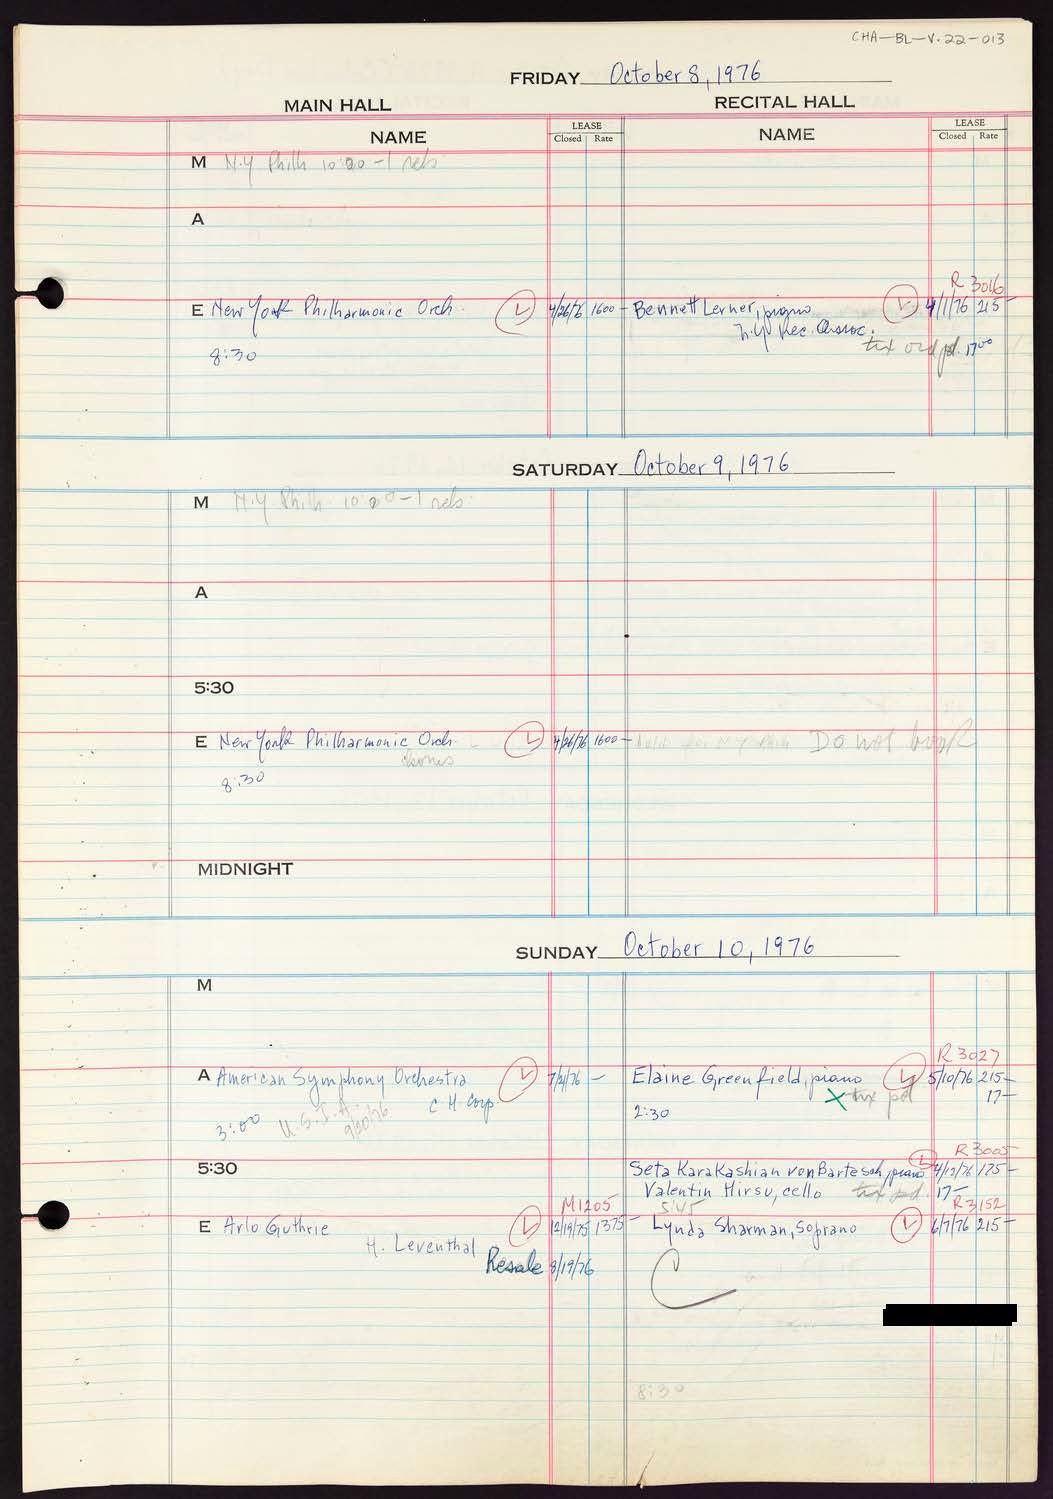 CHA-BL-V.22-013
FRIDAY October 8, 1976
MAIN HALL
RECITAL HALL
NAME
LEASE
Closed Rate
NAME
LEASE
Closed Rate
M N.Y Philh 10:00-1 reh
A
R 3016
E New York Philharmonic Orch. 4/26/76 1600-
Bennett Lerner, piano 4/1/76 215-
N.Y Rec. Assoc.
8:30
tix ord pd. 17 00
SATURDAY October 9, 1976
M N.Y Philh. 10 00-1 reh
A
5:30
E New York Philharmonic Orch. 4/26/76 1600-
Hold for NY Phil Do not book
chorus
8:30
MIDNIGHT
SUNDAY October 10, 1976
M
R 3027
A American Symphony Orchestra 7/2/76 -
Elaine Greenfield, piano 5/10/76 215-
C H Corp
X tix pd 17-
3:00 U.S.I.A. 9/30/76
2:30
R 3005
5:30
Seta Karakashian von Bartesch, piano 4/12/76 175-
Valentin Hirsu, cello tix pd. 17-
M1205
5:45
R 3152
E Arlo Guthrie 12/19/75 1375-
Lynda Sharman, Soprano 6/7/76 215-
H. Leventhal
Resale 8/19/76
C
8:30